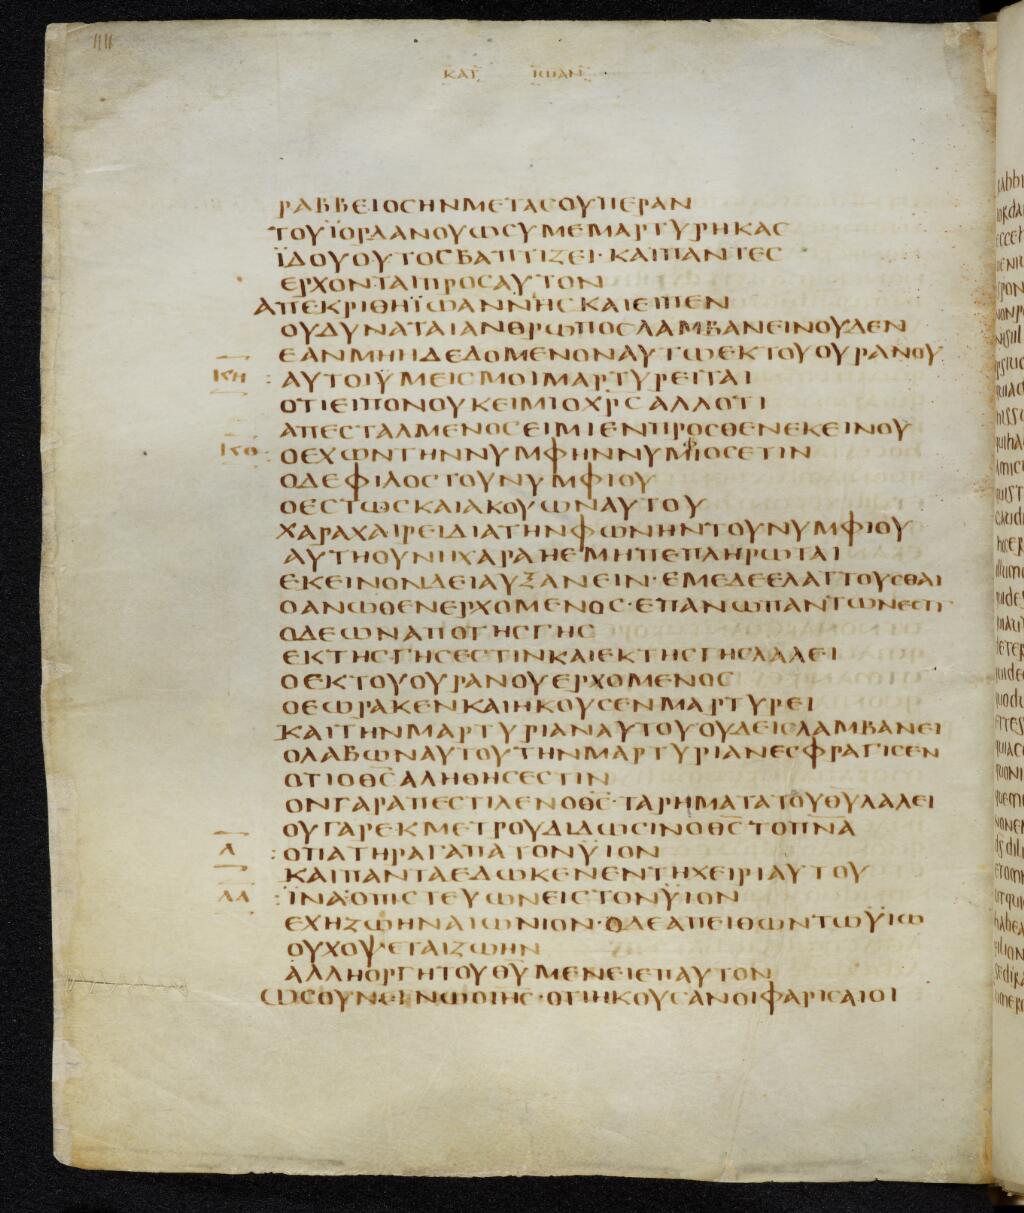 ΚΑΤ ΙΩΑΝ
ΡΑΒΒΕΙΟΣΗΝΜΕΤΑΣΟΥΠΕΡΑΝ
ΤΟΥΪΟΡΔΑΝΟΥΩΣΥΜΕΜΑΡΤΥΡΗΚΑΣ
ΪΔΟΥΟΥΤΟΣΒΑΠΤΙΖΕΙ·ΚΑΙΠΑΝΤΕΣ
ΕΡΧΟΝΤΑΙΠΡΟΣΑΥΤΟΝ
ΑΠΕΚΡΙΘΗΪΩΑΝΝΗΣΚΑΙΕΙΠΕΝ
ΟΥΔΥΝΑΤΑΙΑΝΘΡΩΠΟΣΛΑΜΒΑΝΕΙΝΟΥΔΕΝ
ΕΑΝΜΗΗΔΕΔΟΜΕΝΟΝΑΥΤΩΕΚΤΟΥΟΥΡΑΝΟΥ
ΚΗ : ΑΥΤΟΙΫΜΕΙΣΜΟΙΜΑΡΤΥΡΕΙΤΑΙ
ΟΤΙΕΙΠΟΝΟΥΚΕΙΜΙΟΧΡΣΑΛΛΟΤΙ
ΑΠΕΣΤΑΛΜΕΝΟΣΕΙΜΙΕΝΠΡΟΣΘΕΝΕΚΕΙΝΟΥ
ΚΘ : ΟΕΧΩΝΤΗΝΝΥΜΦΗΝΝΥΜΦΙΟΣΕΤΙΝ
ΟΔΕΦΙΛΟΣΤΟΥΝΥΜΦΙΟΥ
ΟΕΣΤΩΣΚΑΙΑΚΟΥΩΝΑΥΤΟΥ
ΧΑΡΑΧΑΙΡΕΙΔΙΑΤΗΝΦΩΝΗΝΤΟΥΝΥΜΦΙΟΥ
ΑΥΤΗΟΥΝΗΧΑΡΑΗΕΜΗΠΕΠΛΗΡΩΤΑΙ
ΕΚΕΙΝΟΝΔΕΙΑΥΞΑΝΕΙΝ·ΕΜΕΔΕΕΛΑΤΤΟΥΣΘΑΙ
ΟΑΝΩΘΕΝΕΡΧΟΜΕΝΟΣ·ΕΠΑΝΩΠΑΝΤΩΝΕΣΤΙ
ΟΔΕΩΝΑΠΟΤΗΣΓΗΣ
ΕΚΤΗΣΓΗΣΕΣΤΙΝΚΑΙΕΚΤΗΣΓΗΣΛΑΛΕΙ
ΟΕΚΤΟΥΟΥΡΑΝΟΥΕΡΧΟΜΕΝΟΣ
ΟΕΩΡΑΚΕΝΚΑΙΗΚΟΥΣΕΝΜΑΡΤΥΡΕΙ
ΚΑΙΤΗΝΜΑΡΤΥΡΙΑΝΑΥΤΟΥΟΥΔΕΙΣΛΑΜΒΑΝΕΙ
ΟΛΑΒΩΝΑΥΤΟΥΤΗΝΜΑΡΤΥΡΙΑΝΕΣΦΡΑΓΙΣΕΝ
ΟΤΙΟΘΣΑΛΗΘΗΣΕΣΤΙΝ
ΟΝΓΑΡΑΠΕΣΤΙΛΕΝΟΘΣ·ΤΑΡΗΜΑΤΑΤΟΥΘΥΛΑΛΕΙ
ΟΥΓΑΡΕΚΜΕΤΡΟΥΔΙΔΩΣΙΝΟΘΣΤΟΠΝΑ
Λ : ΟΠΑΤΗΡΑΓΑΠΑΤΟΝΥΙΟΝ
ΚΑΙΠΑΝΤΑΕΔΩΚΕΝΕΝΤΗΧΕΙΡΙΑΥΤΟΥ
ΛΑ : ΪΝΑΟΠΙΣΤΕΥΩΝΕΙΣΤΟΝΥΙΟΝ
ΕΧΗΖΩΗΝΑΙΩΝΙΟΝ·ΟΔΕΑΠΕΙΘΩΝΤΩΫΙΩ
ΟΥΧΟΨΕΤΑΙΖΩΗΝ
ΑΛΛΗΟΡΓΗΤΟΥΘΥΜΕΝΕΙΕΠΑΥΤΟΝ
ΩΣΟΥΝΕΓΝΩΟΙΗΣ·ΟΤΙΗΚΟΥΣΑΝΟΙΦΑΡΙΣΑΙΟΙ